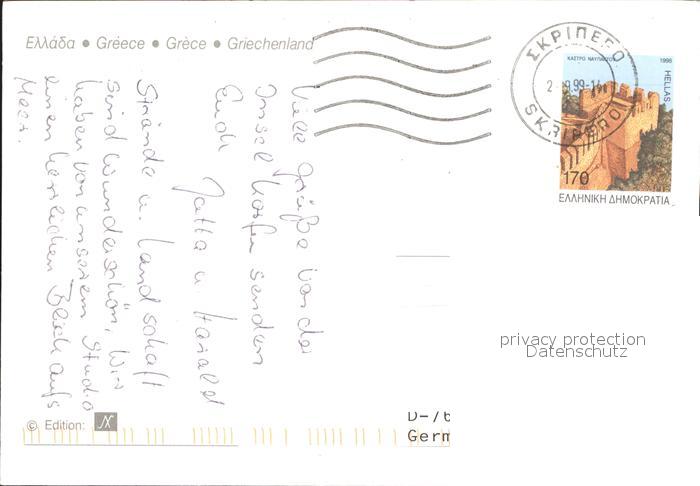 Ελλάδα • Greece • Grèce • Griechenland
Viele Grüße von der
Insel Korfu senden
Euch
Jutta u. Harald
Strände u. Landschaft
sind wunderschön, Wir
haben von unserem Studio
einen herrlichen Blick aufs
Meer.
© Edition: N
ΣΚΡΙΠΕΡΟ
2 - 9.99-14
SKRIPERO
ΚΑΣΤΡΟ ΝΑΥΠΑΚΤΟΥ
1998
HELLAS
170
ΕΛΛΗΝΙΚΗ ΔΗΜΟΚΡΑΤΙΑ
privacy protection
Datenschutz
D-76
Germ